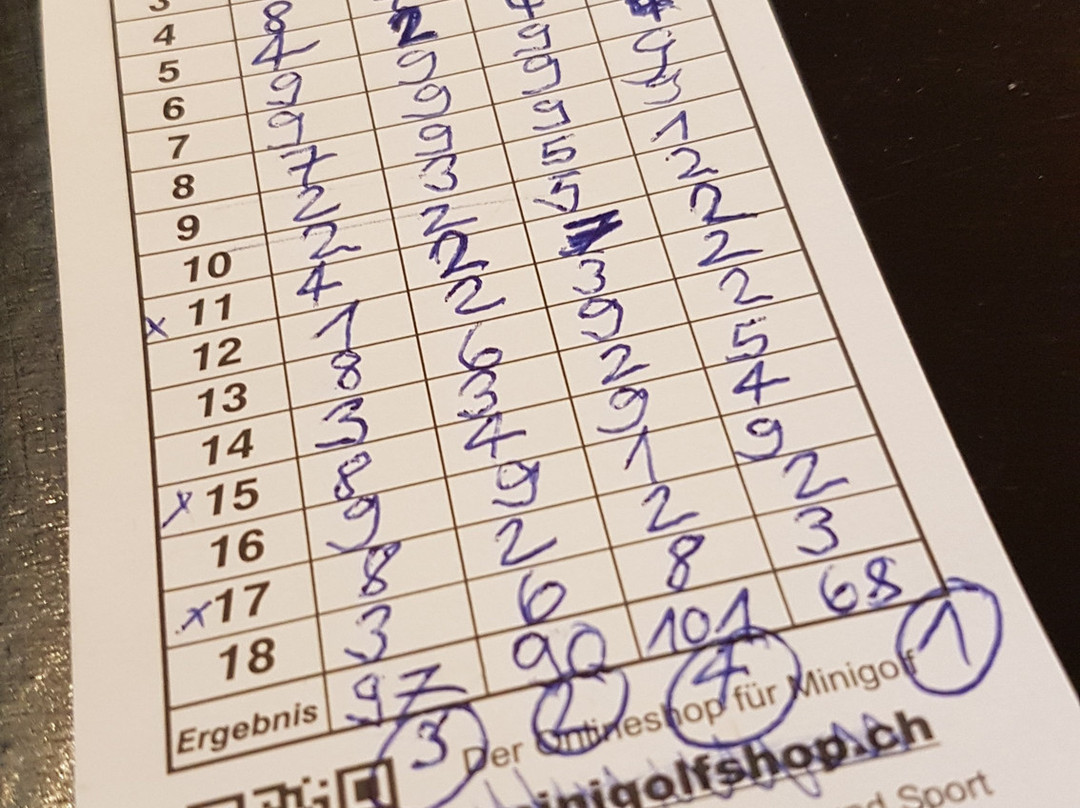 4 8
5 4 2 4
6 9 9 9 4
7 9 9 9 9
8 7 9 9
9 2 3 5 1
10 2 2 5 2
x 11 4 2 2
12 1 2 3 2
13 8 6 9 2
14 3 3 2 5
x 15 8 4 9 4
16 9 9 1 9
x 17 8 2 2 2
18 3 6 8 3
Ergebnis 97 90 101 68
3 2 4 1
Der Onlineshop für Minigolf
minigolfshop.ch
Sport